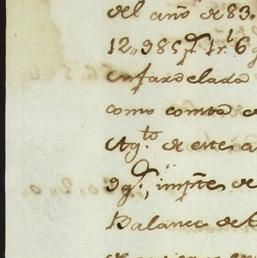 del año de 83.
12,985 p.s 1 r.l 6 g
enfardelada
como consta
Ag.to de este a
g.s, imp.tes de
Balance de